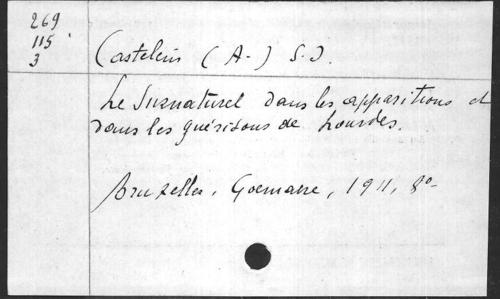 269
115
3
Castelein (A.) S.J.
Le Surnaturel dans les apparitions et
dans les guérisons de Lourdes.
Bruxelles, Goemaere, 1911, 8o-